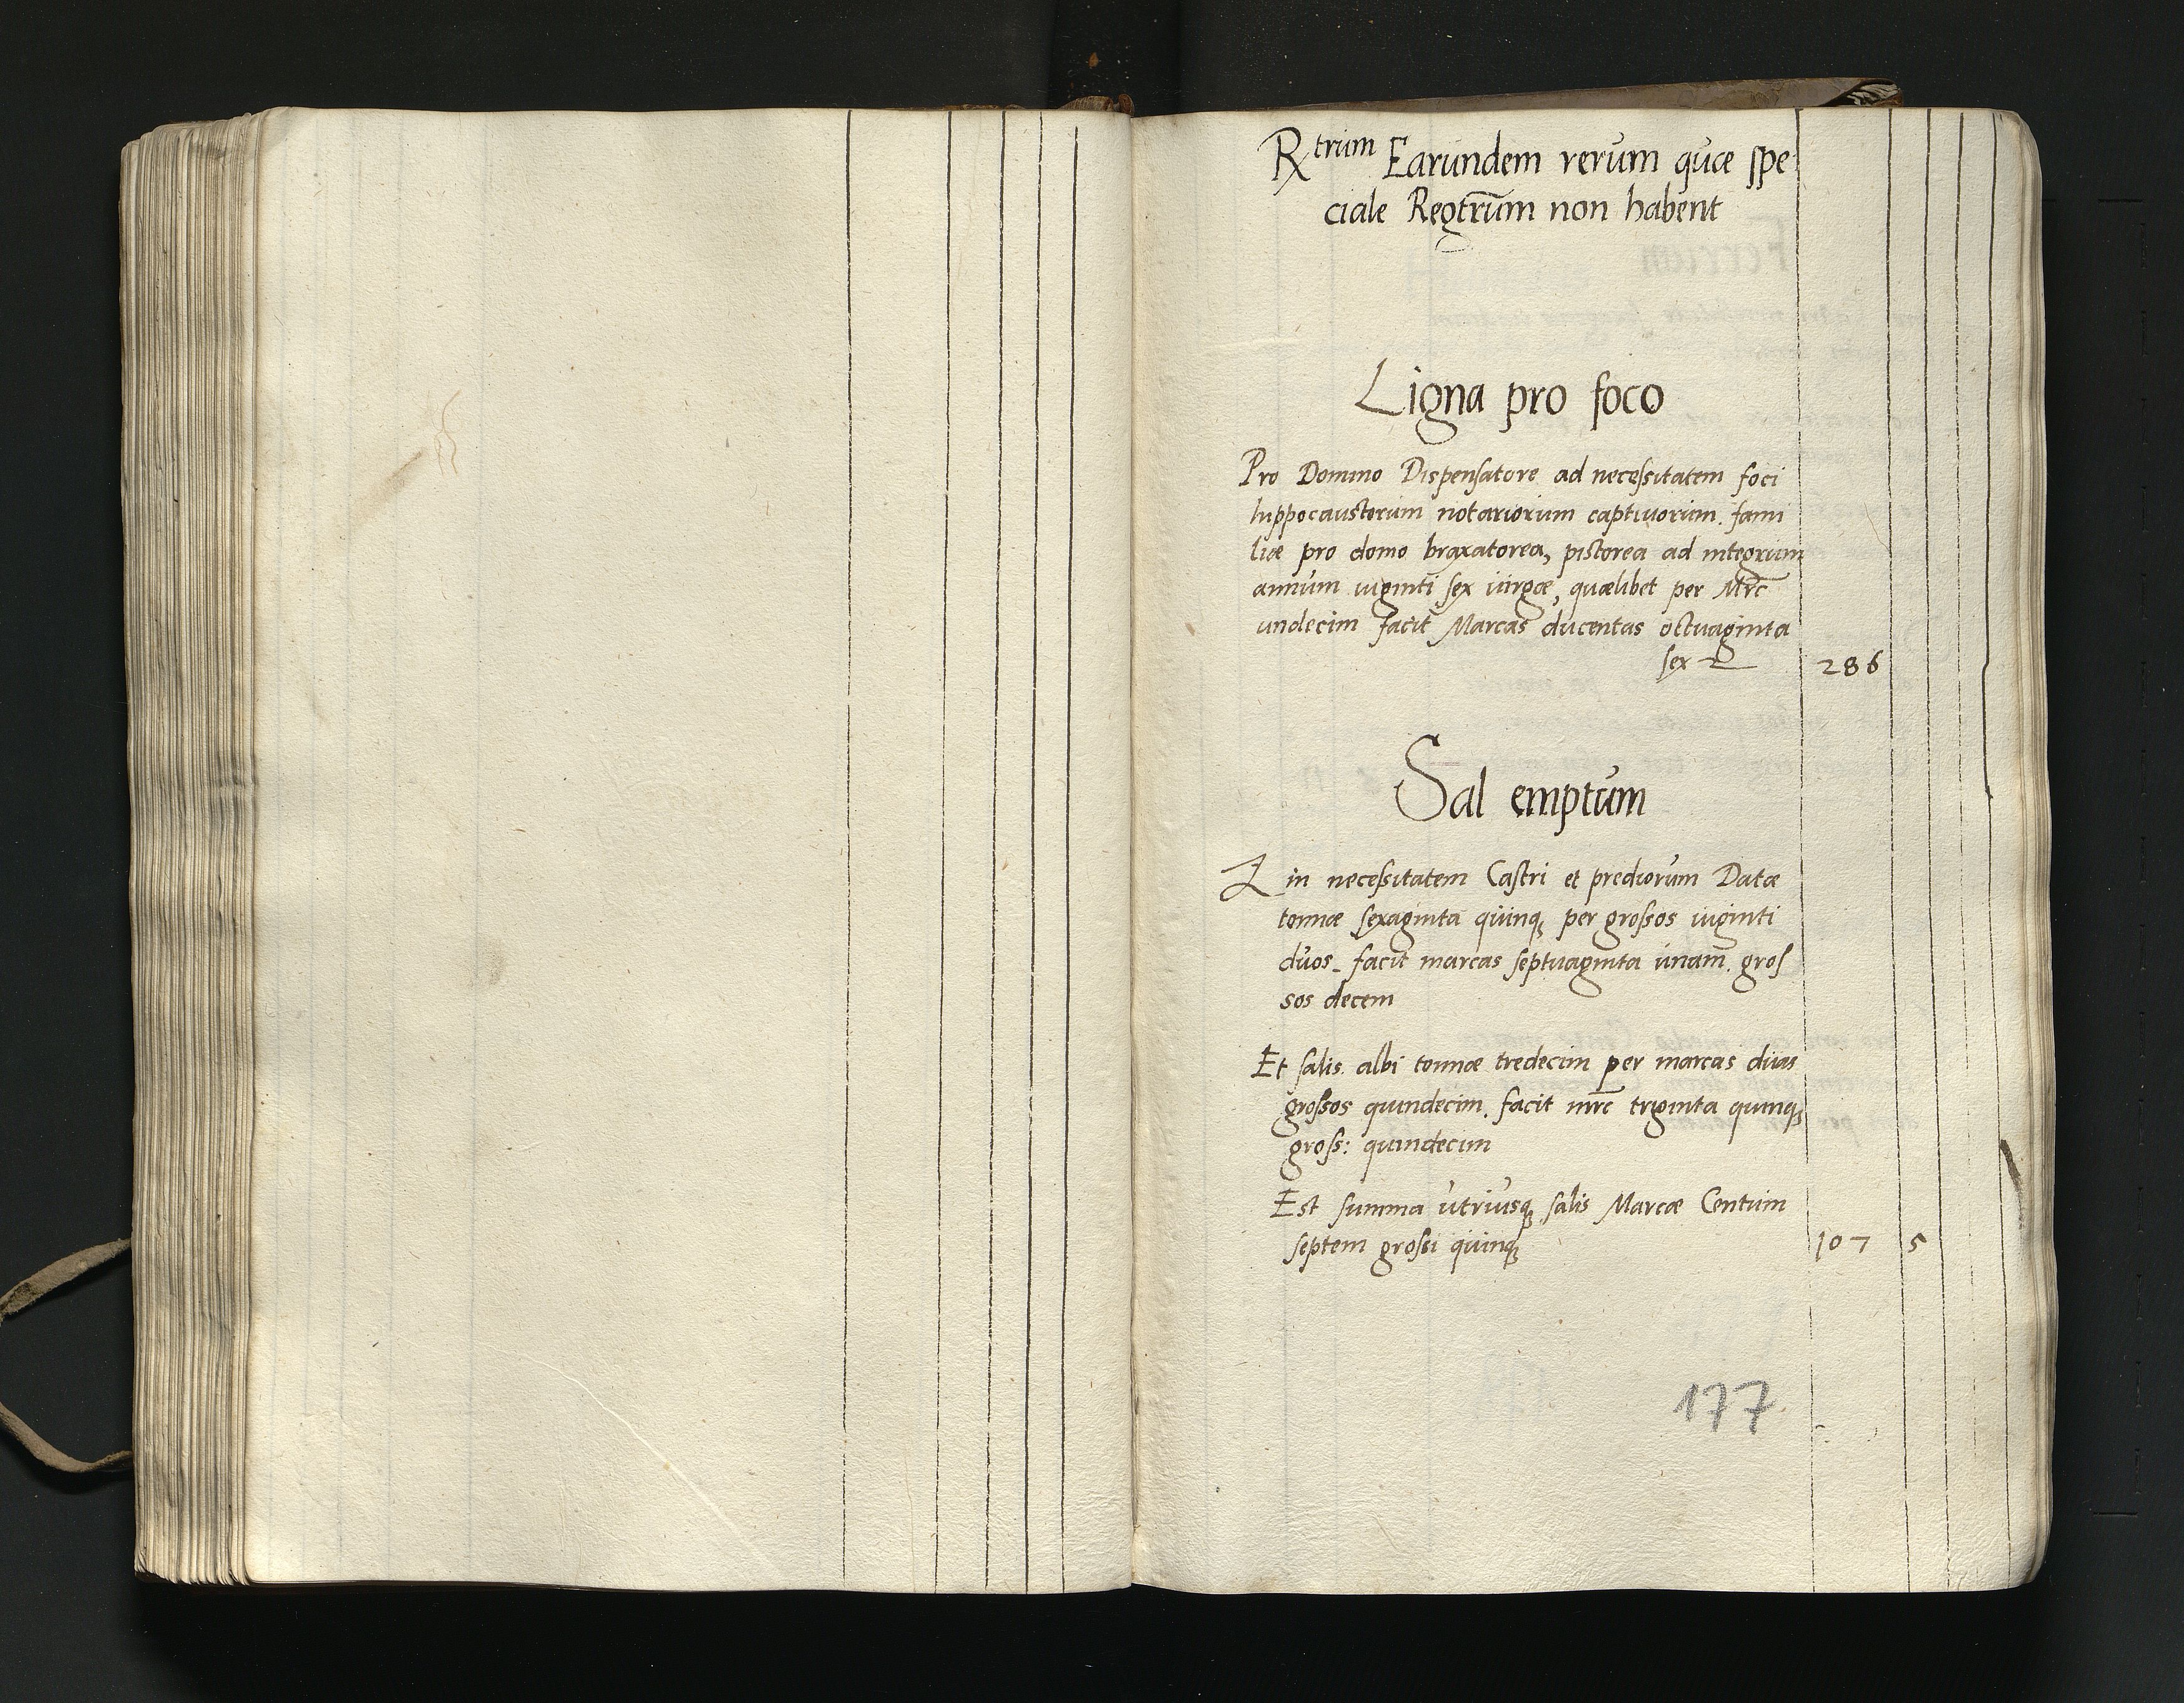 Rtrum Earundem rerum quæ spe-
ciale Regtrum non habent
Ligna pro foco
Pro Domino Dispensatore ad necessitatem foci
hippocaustorum notariorum captivorum. fami
liæ pro domo braxatorea, pistorea ad integrum
annum viginti sex virgæ, quælibet per Mrc
undecim facit Marcas ducentas octuaginta
sex 286
Sal emptum
in necessitatem Castri et prediorum Datæ
tonnæ sexaginta quinq; per grossos viginti
duos_ facit marcas septuaginta unam. gros
sos decem
Et salis albi tonnæ tredecim per marcas duas
grossos quindecim. facit mrc triginta quinq;
gross: quindecim
Est summa utriusq; salis Marcæ Centum
septem grossi quinq; 107 5
177